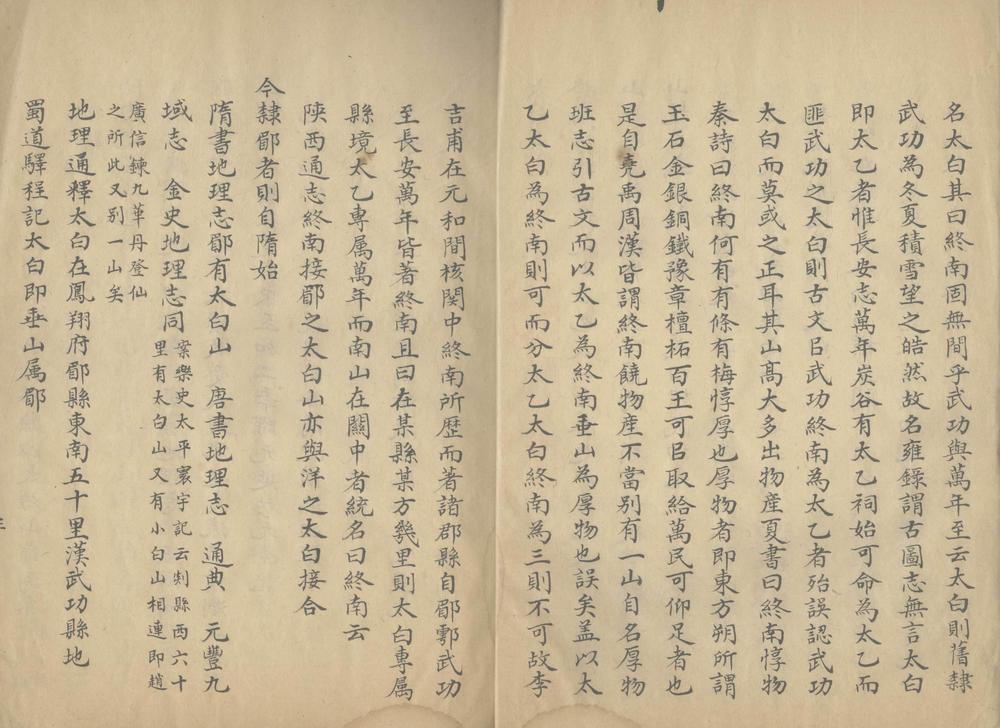 名太白其曰終南固無間乎武功與萬年至云太白則舊隸
武功為冬夏積雪望之皓然故名雍錄謂古圖志無言太白
即太乙者惟長安志萬年炭谷有太乙祠始可命為太乙而
匪武功之太白則古文㠯武功終南為太乙者殆誤認武功
太白而莫或之正耳其山髙大多出物產夏書曰終南惇物
秦詩曰終南何有有條有梅惇厚也厚物者即東方朔所謂
玉石金銀銅鐵豫章檀柘百王可㠯取給萬民可仰足者也
是自堯禹周漢皆謂終南饒物產不當別有一山自名厚物
班志引古文而以太乙為終南垂山為厚物也誤矣盖以太
乙太白為終南則可而分太乙太白終南為三則不可故李
吉甫在元和間核関中終南所歴而著諸郡縣自郿鄠武功
至長安萬年皆著終南且曰在某縣某方幾里則太白專属
縣境太乙專属萬年而南山在關中者統名曰終南云
陝西通志終南接郿之太白山亦與洋之太白接合
今隸郿者則自隋始
隋書地理志郿有太白山 唐書地理志 通典 元豐九
域志 金史地理志同 案樂史太平寰宇記云剡縣西六十
里有太白山又有小白山相連即趙
廣信鍊九華丹登仙
之所此又别一山矣
地理通釋太白在鳳翔府郿縣東南五十里漢武功縣地
蜀道驛程記太白即垂山属郿
三